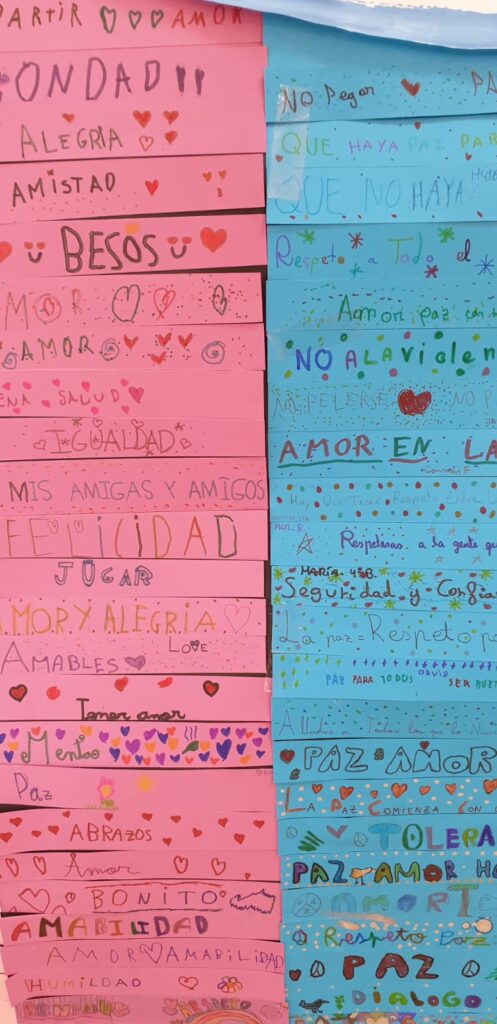 PARTIR AMOR
BONDAD!!
ALEGRIA
AMISTAD
BESOS
AMOR
AMOR
ENA SALUD
IGUALDAD
MIS AMIGAS Y AMIGOS
FELICIDAD
JUGAR
AMOR Y ALEGRIA
AMABLES LOVE
Tener amor
Mentos
Paz
ABRAZOS
Amor
BONITO
AMABILIDAD
AMOR AMABILIDAD
HUMILDAD
RESPETO
NO Pegar PA
QUE HAYA PAZ PAR
QUE NO HAYA
Respeto a Todo el
Amor paz con
NO A LA violen
PELERSE NO P
AMOR EN LA
Carmen F.
Hay Que Tener Respeto Entre
Respetaras a la gente qu
MARÍA 4ºB.
Seguridad y Confia
La paz = Respeto p
DAVID
PAZ PARA TODOS SER BUE
a Todos los que lo Ne
PAZ AMOR
LA PAZ COMIENZA CON
TOLERA
PAZ AMOR HO
AMOR
Respeto Paz
PAZ
DIALOGO